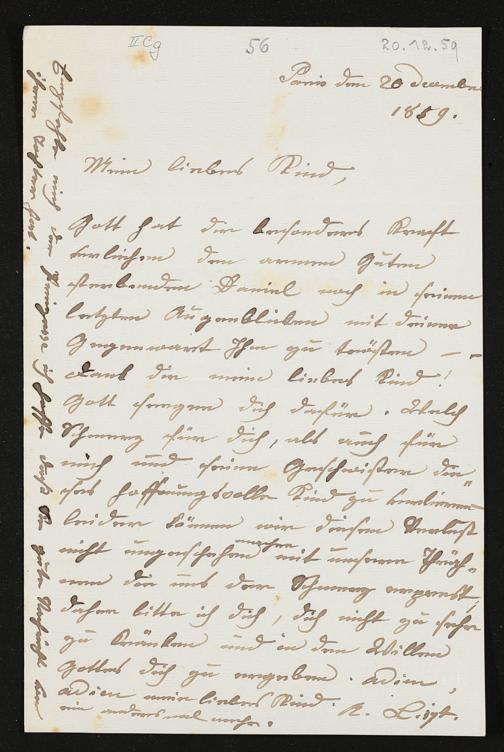 II Cg
56
20.12.59
Paris den 20 December
1859.
Mein liebes Kind,
Gott hat dir besonders Kraft
verliehen dem armen guten
sterbenden Daniel noch in seinen
letzten Augenblicken mit deiner
Gegenwart Ihn zu trösten —
dank dir mein liebes Kind!
Gott segne dich dafür. Welch
Schmerz für dich, als auch für
mich und seine Geschwister die-
ses hoffnungsvolle Kind zu verlieren
leider können wir diesen Verlust
nicht ungeschehen machen mit unsern Thrä-
nen die uns der Schmerz erpresst,
daher bitte ich dich, dich nicht zu sehr
zu kränken und in den Willen
Gottes dich zu ergeben. adieu,
adieu mein liebes Kind.
ein anderes mal mehr.
A. Liszt.
Empfehle mich der Fürstin ich hoffe dass Sie gute Nachricht von
ihrer Tochter hat.